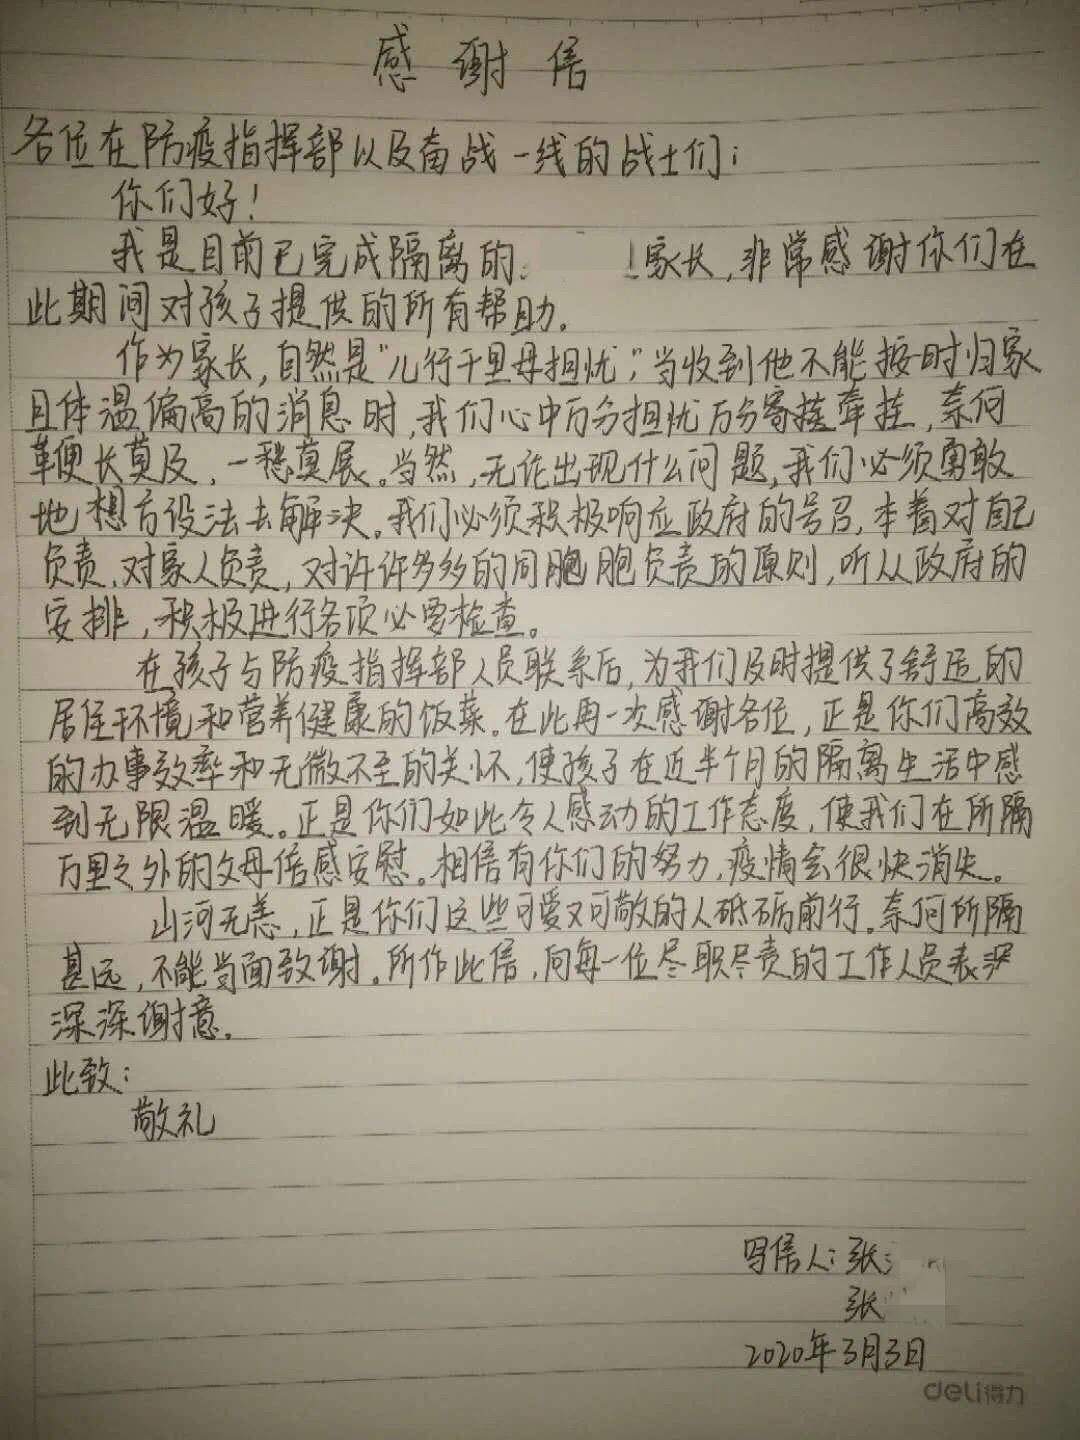 感谢信
各位在防疫指挥部以及奋战一线的战士们:
你们好!
我是目前已完成隔离的 家长,非常感谢你们在
此期间对孩子提供的所有帮助。
作为家长,自然是“儿行千里母担忧”,当收到他不能按时归家
且体温偏高的消息时,我们心中万分担忧万分牵挂,奈何
鞭长莫及,一愁莫展。当然,无论出现什么问题,我们必须勇敢
地想方设法去解决。我们必须积极响应政府的号召,本着对自己
负责,对家人负责,对许许多多的同胞负责的原则,听从政府的
安排,积极进行各项必要检查。
在孩子与防疫指挥部人员联系后,为我们及时提供了舒适的
居住环境和营养健康的饭菜。在此再一次感谢各位,正是你们高效
的办事效率和无微不至的关怀,使孩子在近半个月的隔离生活中感
到无限温暖。正是你们如此令人感动的工作态度,使我们在所隔
万里之外的父母倍感安慰。相信有你们的努力,疫情会很快消失。
山河无恙,正是你们这些可爱又可敬的人砥砺前行。奈何所隔
甚远,不能当面致谢。所作此信,向每一位尽职尽责的工作人员表示
深深谢意。
此致:
敬礼
写信人:张
张
2020年3月3日
deli得力